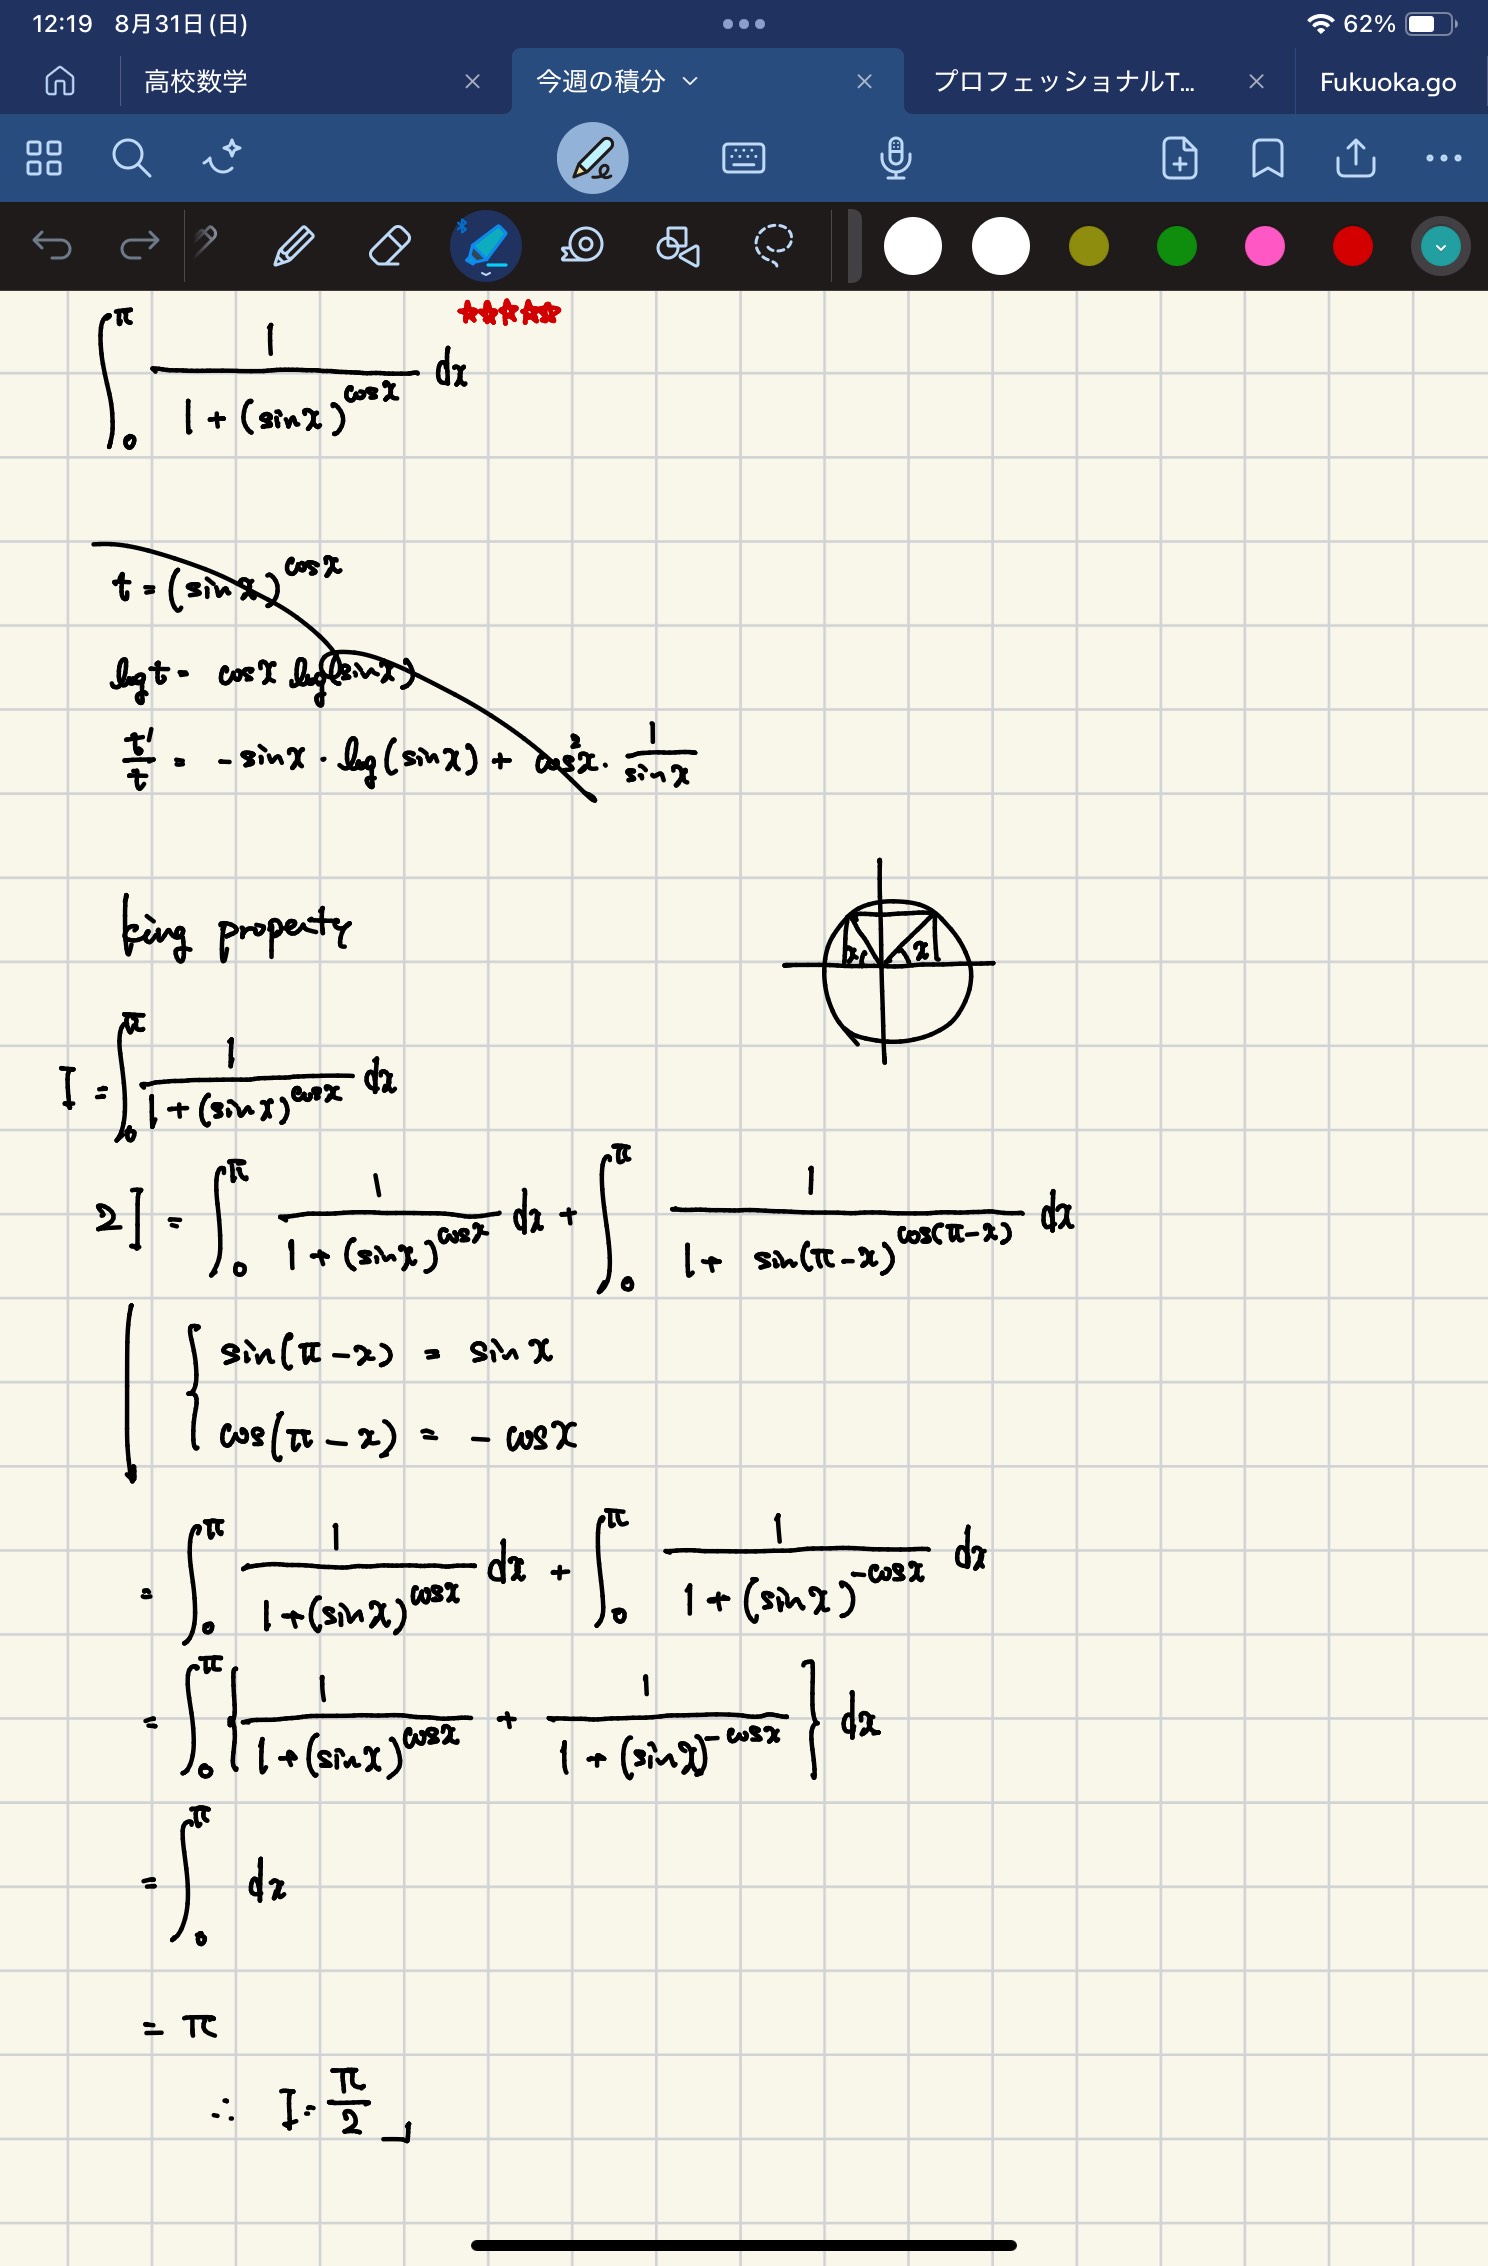 12:19 8月31日(日) 62%
高校数学 今週の積分 プロフェッショナルT... Fukuoka.go
∫₀^π 1/(1+(sinx)^cosx) dx ☆☆☆☆☆
t = (sinx)^cosx
log t = cosx log(sinx)
t'/t = -sinx · log(sinx) + cos²x · 1/sinx
king property
x x
I = ∫₀^π 1/(1+(sinx)^cosx) dx
2I = ∫₀^π 1/(1+(sinx)^cosx) dx + ∫₀^π 1/(1+ sin(π-x))^cos(π-x) dx
{ sin(π-x) = sinx
cos(π-x) = -cosx
= ∫₀^π 1/(1+(sinx)^cosx) dx + ∫₀^π 1/(1+(sinx)^-cosx) dx
= ∫₀^π { 1/(1+(sinx)^cosx) + 1/(1+(sinx)^-cosx) } dx
= ∫₀^π dx
= π
∴ I = π/2